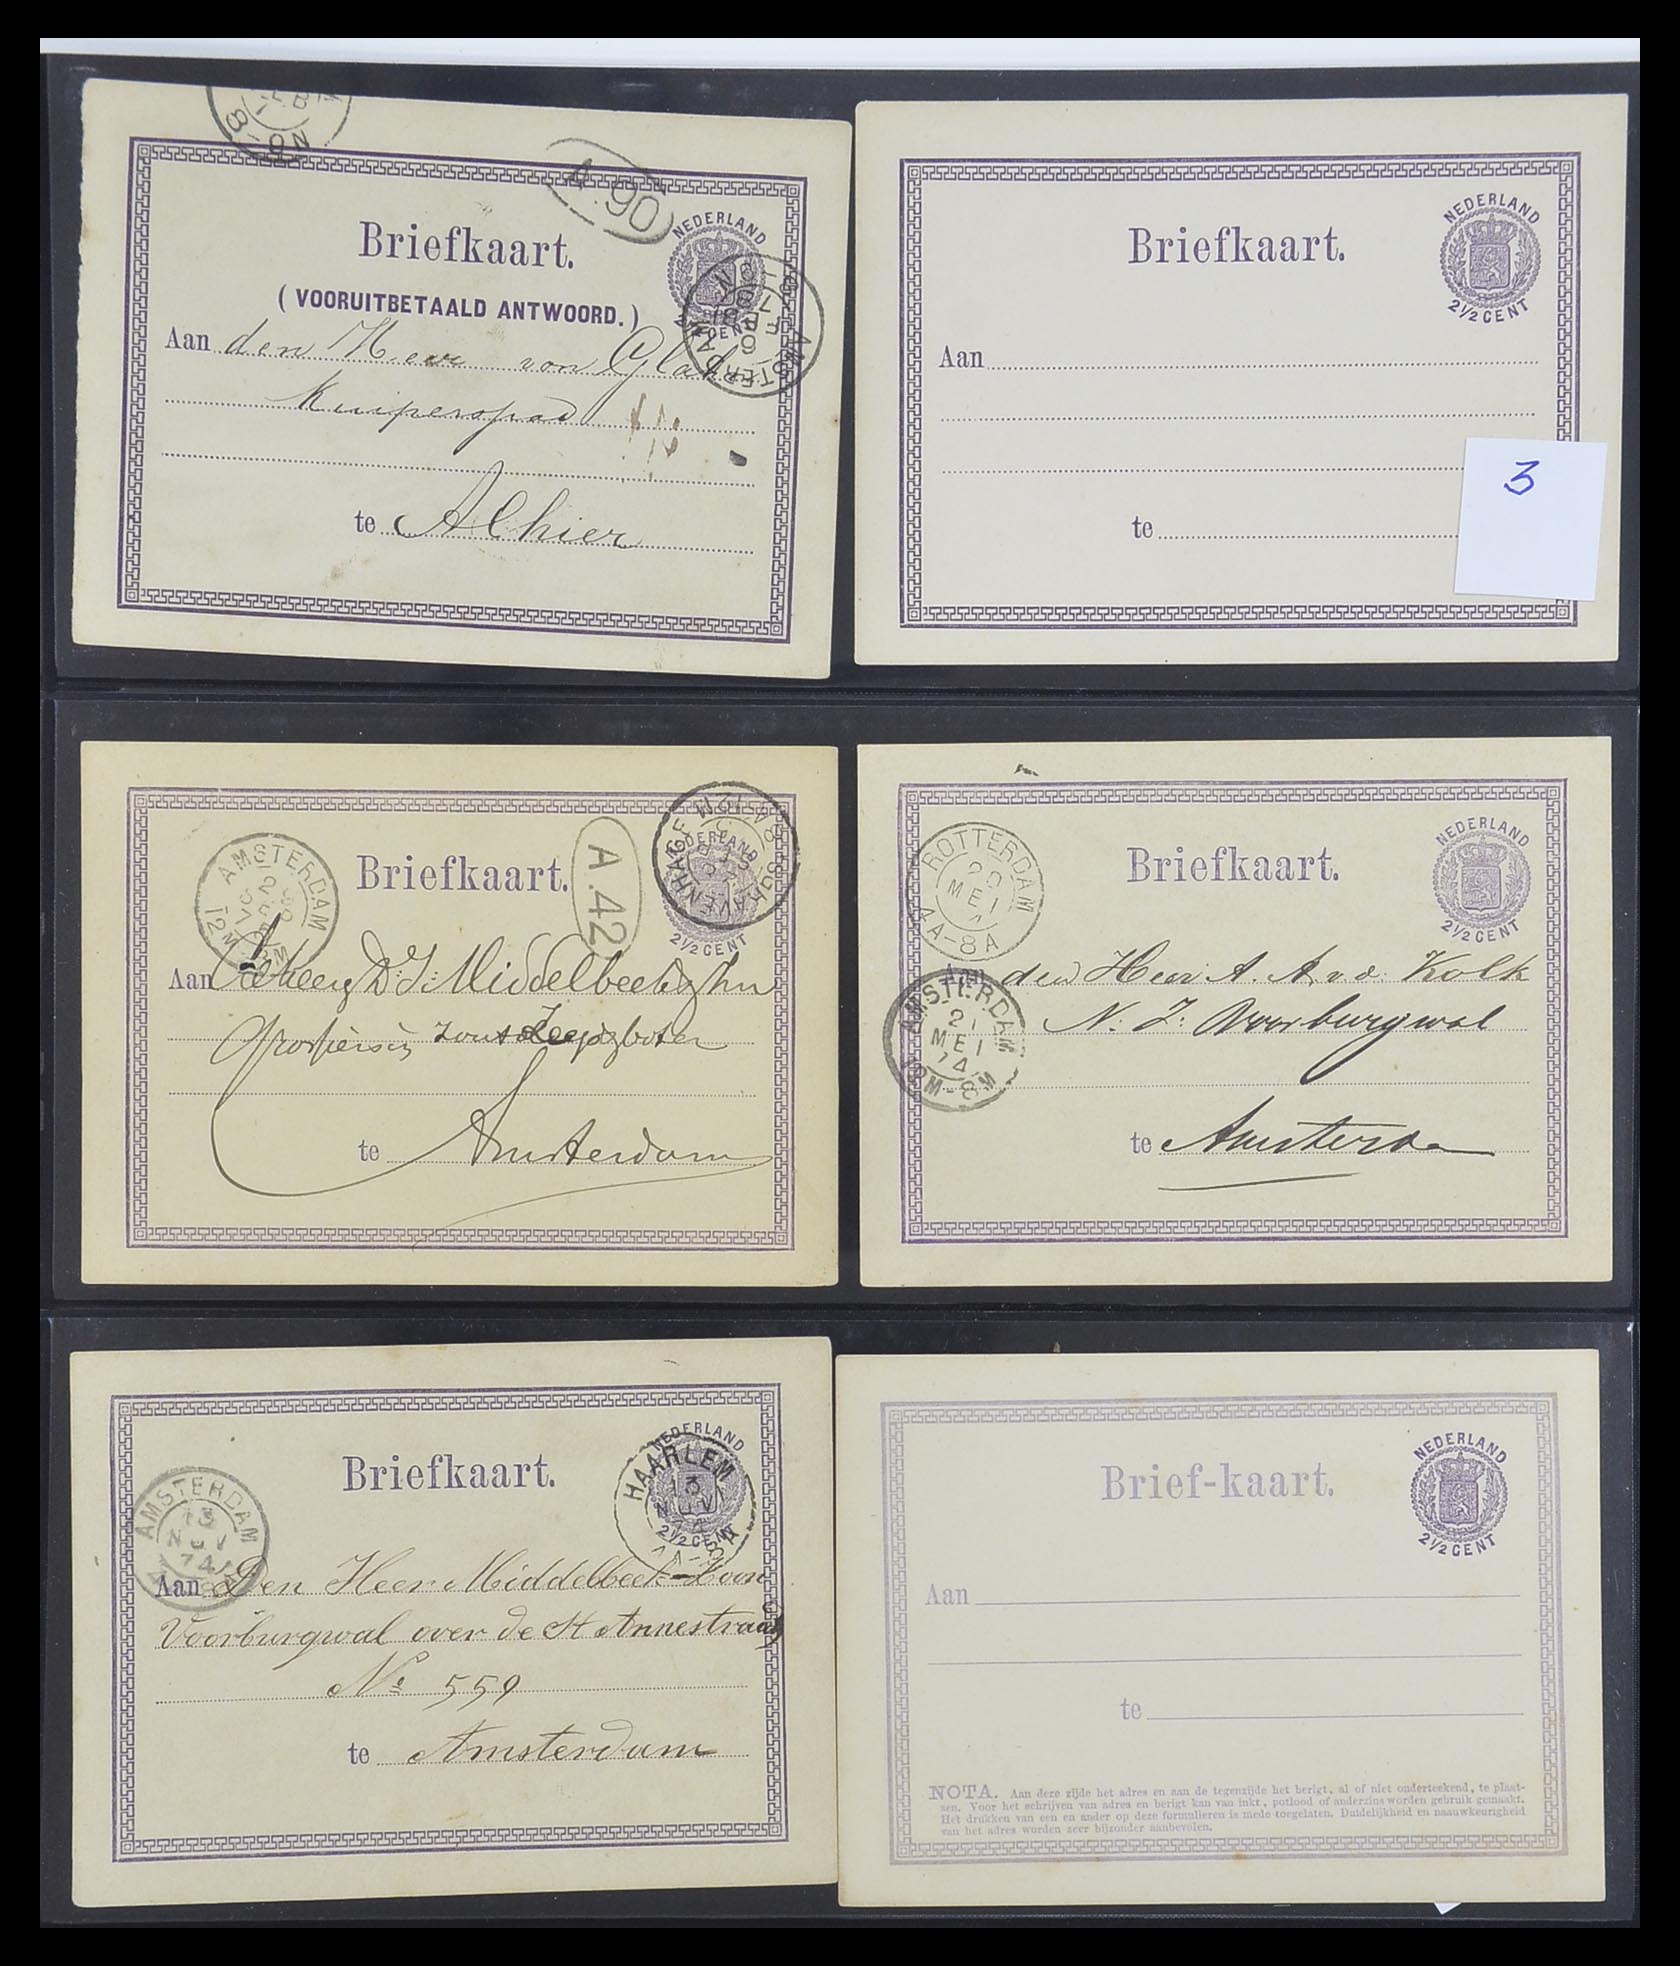 A.90
NEDERLAND
Briefkaart.
(VOORUITBETAALD ANTWOORD.)
Aan den Heer von Glah
Kuiperspad
te Alhier
AMSTERDAM
NEDERLAND
Briefkaart.
2½ CENT
Aan
te
3
AMSTERDAM
12M
Briefkaart.
A.42
NEDERLAND
2½ CENT
Aan
te Amsterdam
ROTTERDAM
20
MEI
4A-8A
Briefkaart.
NEDERLAND
2½ CENT
Aan den Heer A. A. v. d. Kolk
N. Z. Voorburgwal
te Amsterda
AMSTERDAM
21
MEI
74
NEDERLAND
Briefkaart.
2½ CENT
HAARLEM
13
NOV
AMSTERDAM
13
NOV
74
Aan Den Heer Middelbeek-Loon
Voorburgwal over de St Annestraat
No 559
te Amsterdam
NEDERLAND
Brief-kaart.
2½ CENT
Aan
te
NOTA. Aan deze zijde het adres en aan de tegenzijde het berigt, al of niet onderteekend, te plaat-
sen. Voor het schrijven van adres en berigt kan van inkt, potlood of anderzins worden gebruik gemaakt.
Het drukken van een en ander op deze formulieren is mede toegelaten. Duidelijkheid en naauwkeurigheid
van het adres worden zeer bijzonder aanbevolen.